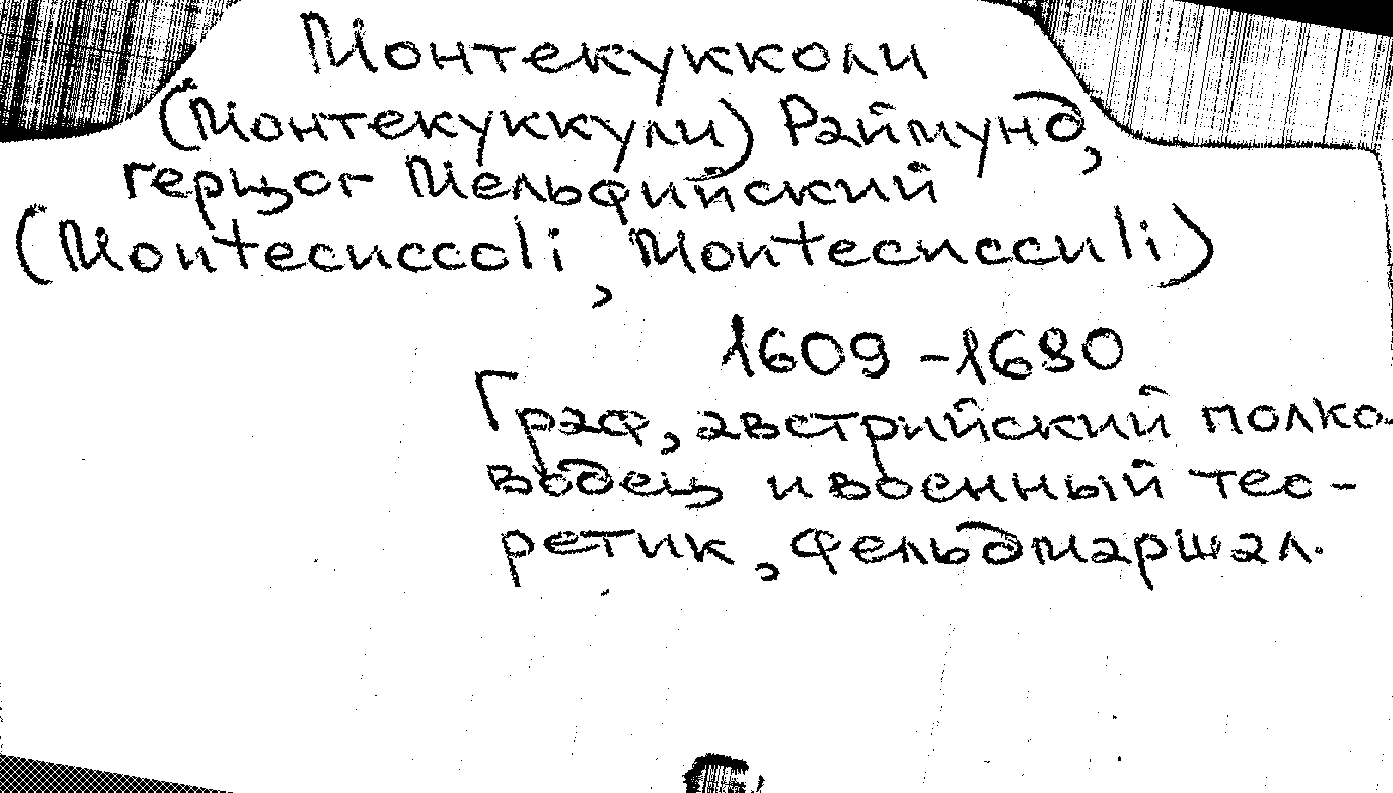 Монтекукколи
(Монтекуккули) Раймунд,
герцог Мельфийский
(Montecuccoli, Montecucculi)
1609-1680
Граф, австрийский полко-
водец и военный тео-
ретик, фельдмаршал.